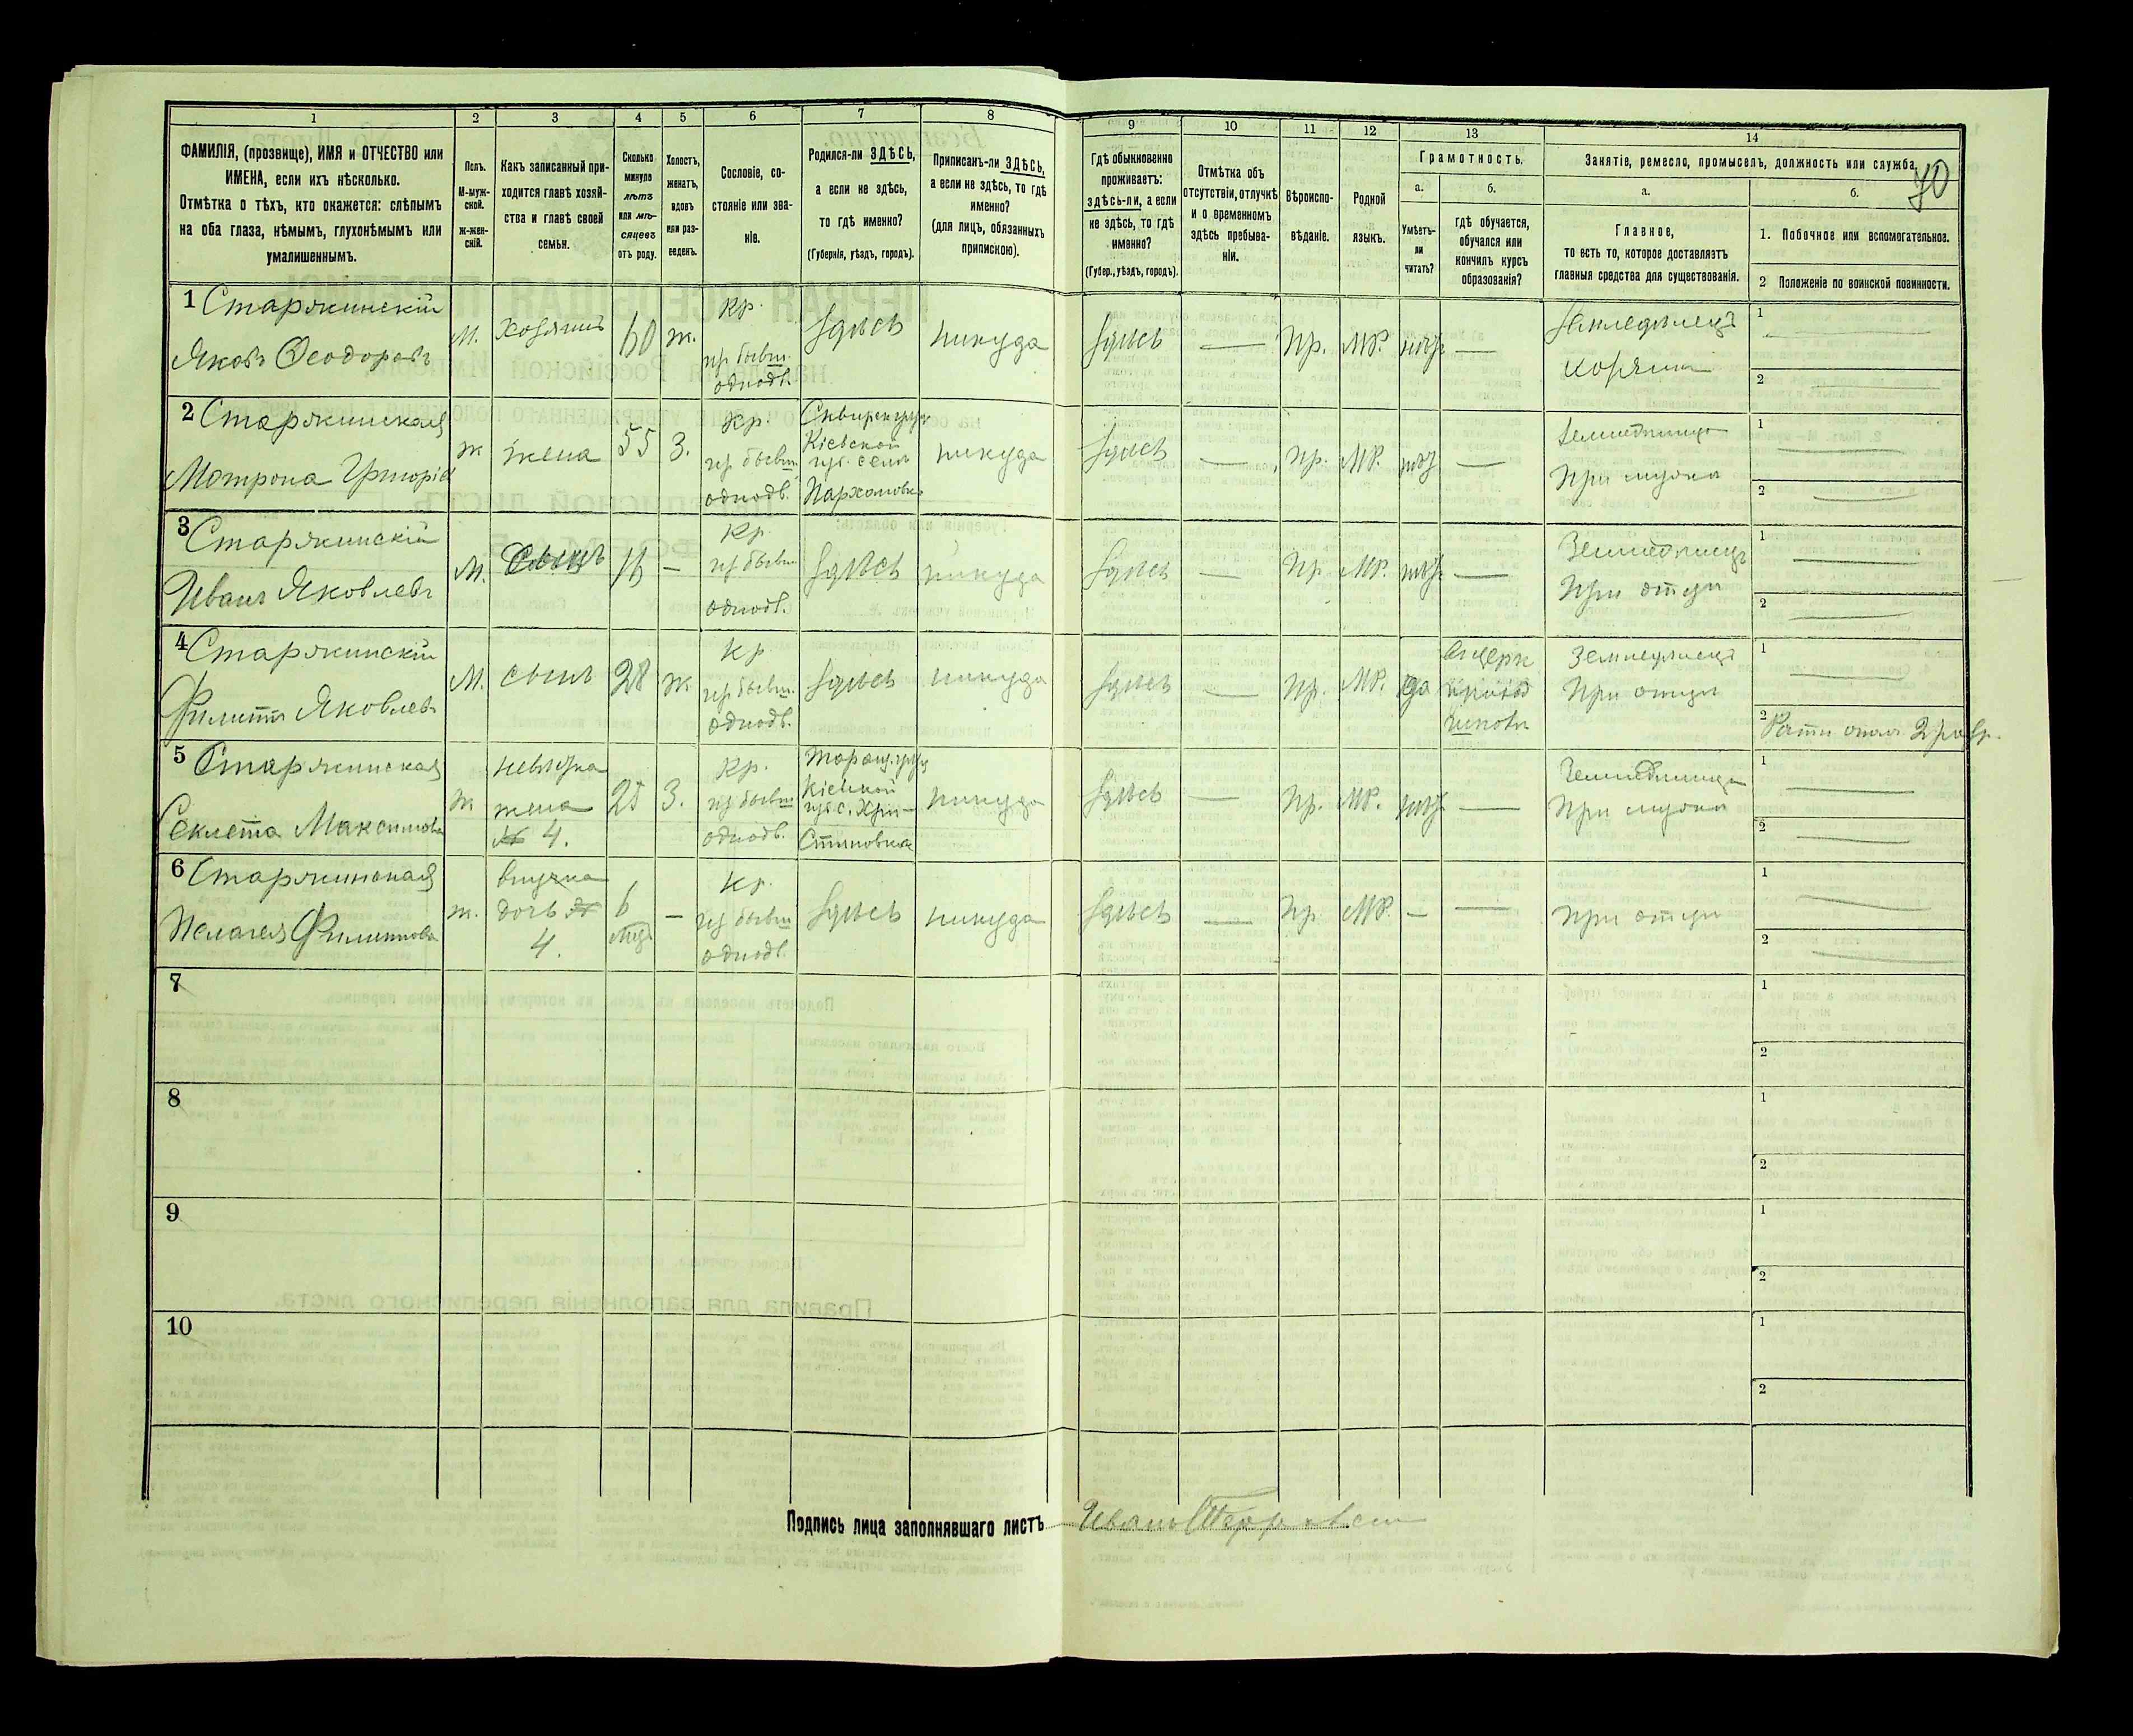 70
1 2 3 4 5 6 7 8 9 10 11 12 13 14
ФАМИЛІЯ, (прозвище), ИМЯ и ОТЧЕСТВО или
ИМЕНА, если ихъ нѣсколько.
Отмѣтка о тѣхъ, кто окажется: слѣпымъ
на оба глаза, нѣмымъ, глухонѣмымъ или
умалишеннымъ.
Полъ.
М-муж-
ской.
ж-жен-
скій.
Какъ записанный при-
ходится главѣ хозяй-
ства и главѣ своей
семьи.
Сколько
минуло
лѣтъ
или мѣ-
сяцевъ
отъ роду.
Холостъ,
женатъ,
вдовъ
или раз-
веденъ.
Сословіе, со-
стояніе или зва-
ніе.
Родился-ли ЗДѢСЬ,
а если не здѣсь,
то гдѣ именно?
(Губернія, уѣздъ, городъ).
Приписанъ-ли ЗДѢСЬ,
а если не здѣсь, то гдѣ
именно?
(для лицъ, обязанныхъ
припискою).
Гдѣ обыкновенно
проживаетъ:
здѣсь-ли, а если
не здѣсь, то гдѣ
именно?
(Губер., уѣздъ, городъ).
Отмѣтка объ
отсутствіи, отлучкѣ
и о временномъ
здѣсь пребыва-
ніи.
Вѣроиспо-
вѣданіе.
Родной
языкъ.
Грамотность.
а.
Умѣетъ-
ли
читать?
б.
гдѣ обучается,
обучался или
кончилъ курсъ
образованія?
Занятіе, ремесло, промыселъ, должность или служба.
а.
Главное,
то есть то, которое доставляетъ
главныя средства для существованія.
б.
1. Побочное или вспомогательное.
2 Положеніе по воинской повинности.
1 Старжинскій
Яковъ Ѳеодоровъ
М.
хозяинъ
60
ж.
Кр.
из бывш.
однодв.
здѣсь
никуда
здѣсь
—
Пр.
МР.
нѣтъ
—
Земледѣлецъ
хозяинъ
1 —
2 —
2 Старжинская
Матрона Григорів
ж
жена
55
З.
Кр.
из бывш.
однодв.
Сквирск уѣзд
Кіевской
губ. села
Пархомовк
никуда
здѣсь
—
пр.
МР.
нѣт
—
При мужѣ
1 —
2 —
3 Старжинскій
Иванъ Яковлевъ
М.
Сынъ
16
—
Кр
из бывш
однодв.
здѣсь
никуда
здѣсь
—
Пр
МР.
нѣтъ
—
Земледѣлецъ
При отцѣ
1 —
2 —
4 Старжинскій
Филиппъ Яковлевъ
М.
сынъ
28
ж
Кр
из бывш.
однодв.
здѣсь
никуда
здѣсь
—
Пр.
МР.
да
Земледѣлецъ
При отцѣ
1 —
2 Ратн опол 2 разр.
5 Старжинская
Секлета Максимова
ж
невѣстка
жена
№ 4.
25
З.
Кр.
из бывш
однодв.
Таращ. уѣзд
Кіевской
губ. с. Хри-
стиновка
никуда
здѣсь
—
Пр.
МР.
нѣт
—
При мужѣ
1 —
2 —
6 Старжинская
Пелагея Филиппова
ж.
внучка
дочь №
4.
6
мѣс.
—
Кр.
из бывш
однодв.
здѣсь
никуда
здѣсь
—
Пр
МР.
—
—
При отцѣ
1 —
2 —
7
1
2
8
1
2
9
1
2
10
1
2
Подпись лица заполнявшаго листъ
Иванъ